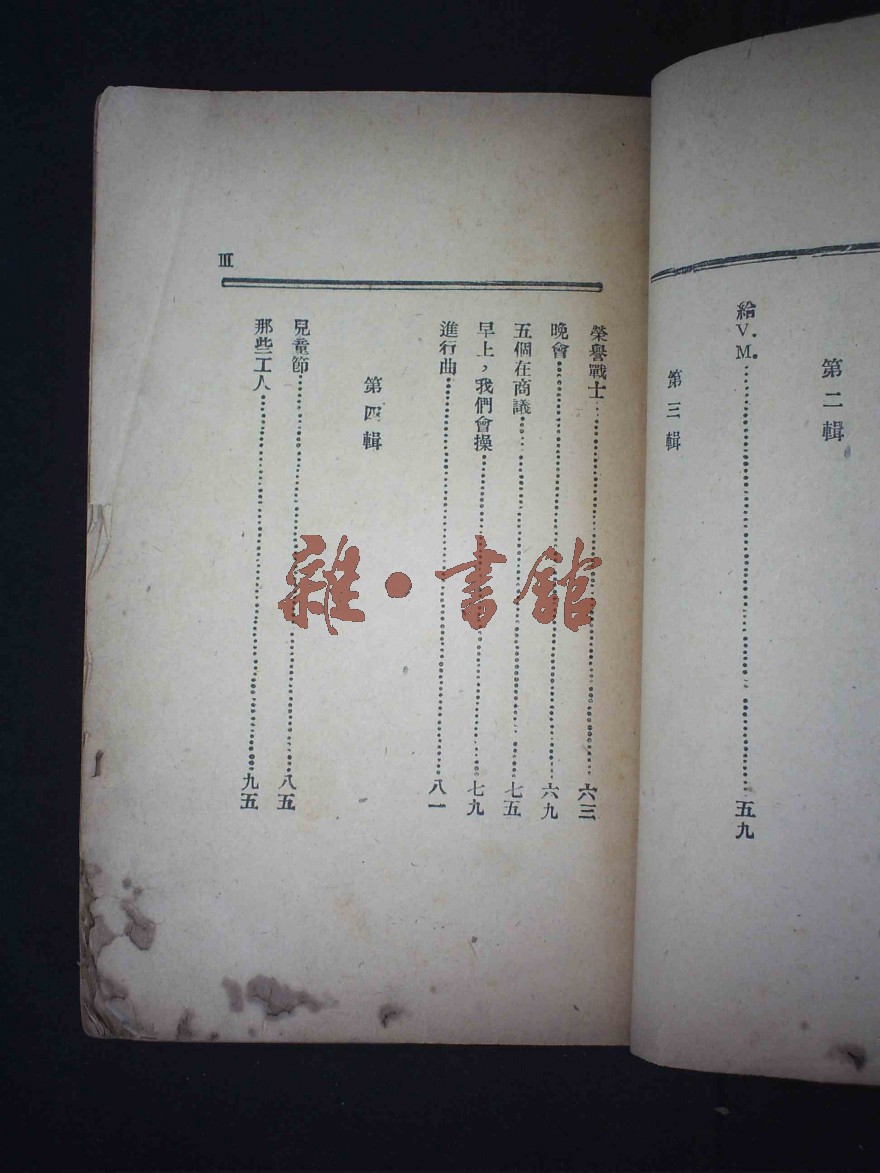 第二輯
給V.M.……五九
第三輯
III
榮譽戰士……六三
晚會……六九
五個在商議……七五
早上，我們會操……七九
進行曲……八一
第四輯
兒童節……八五
那些工人……九五
雜·書館